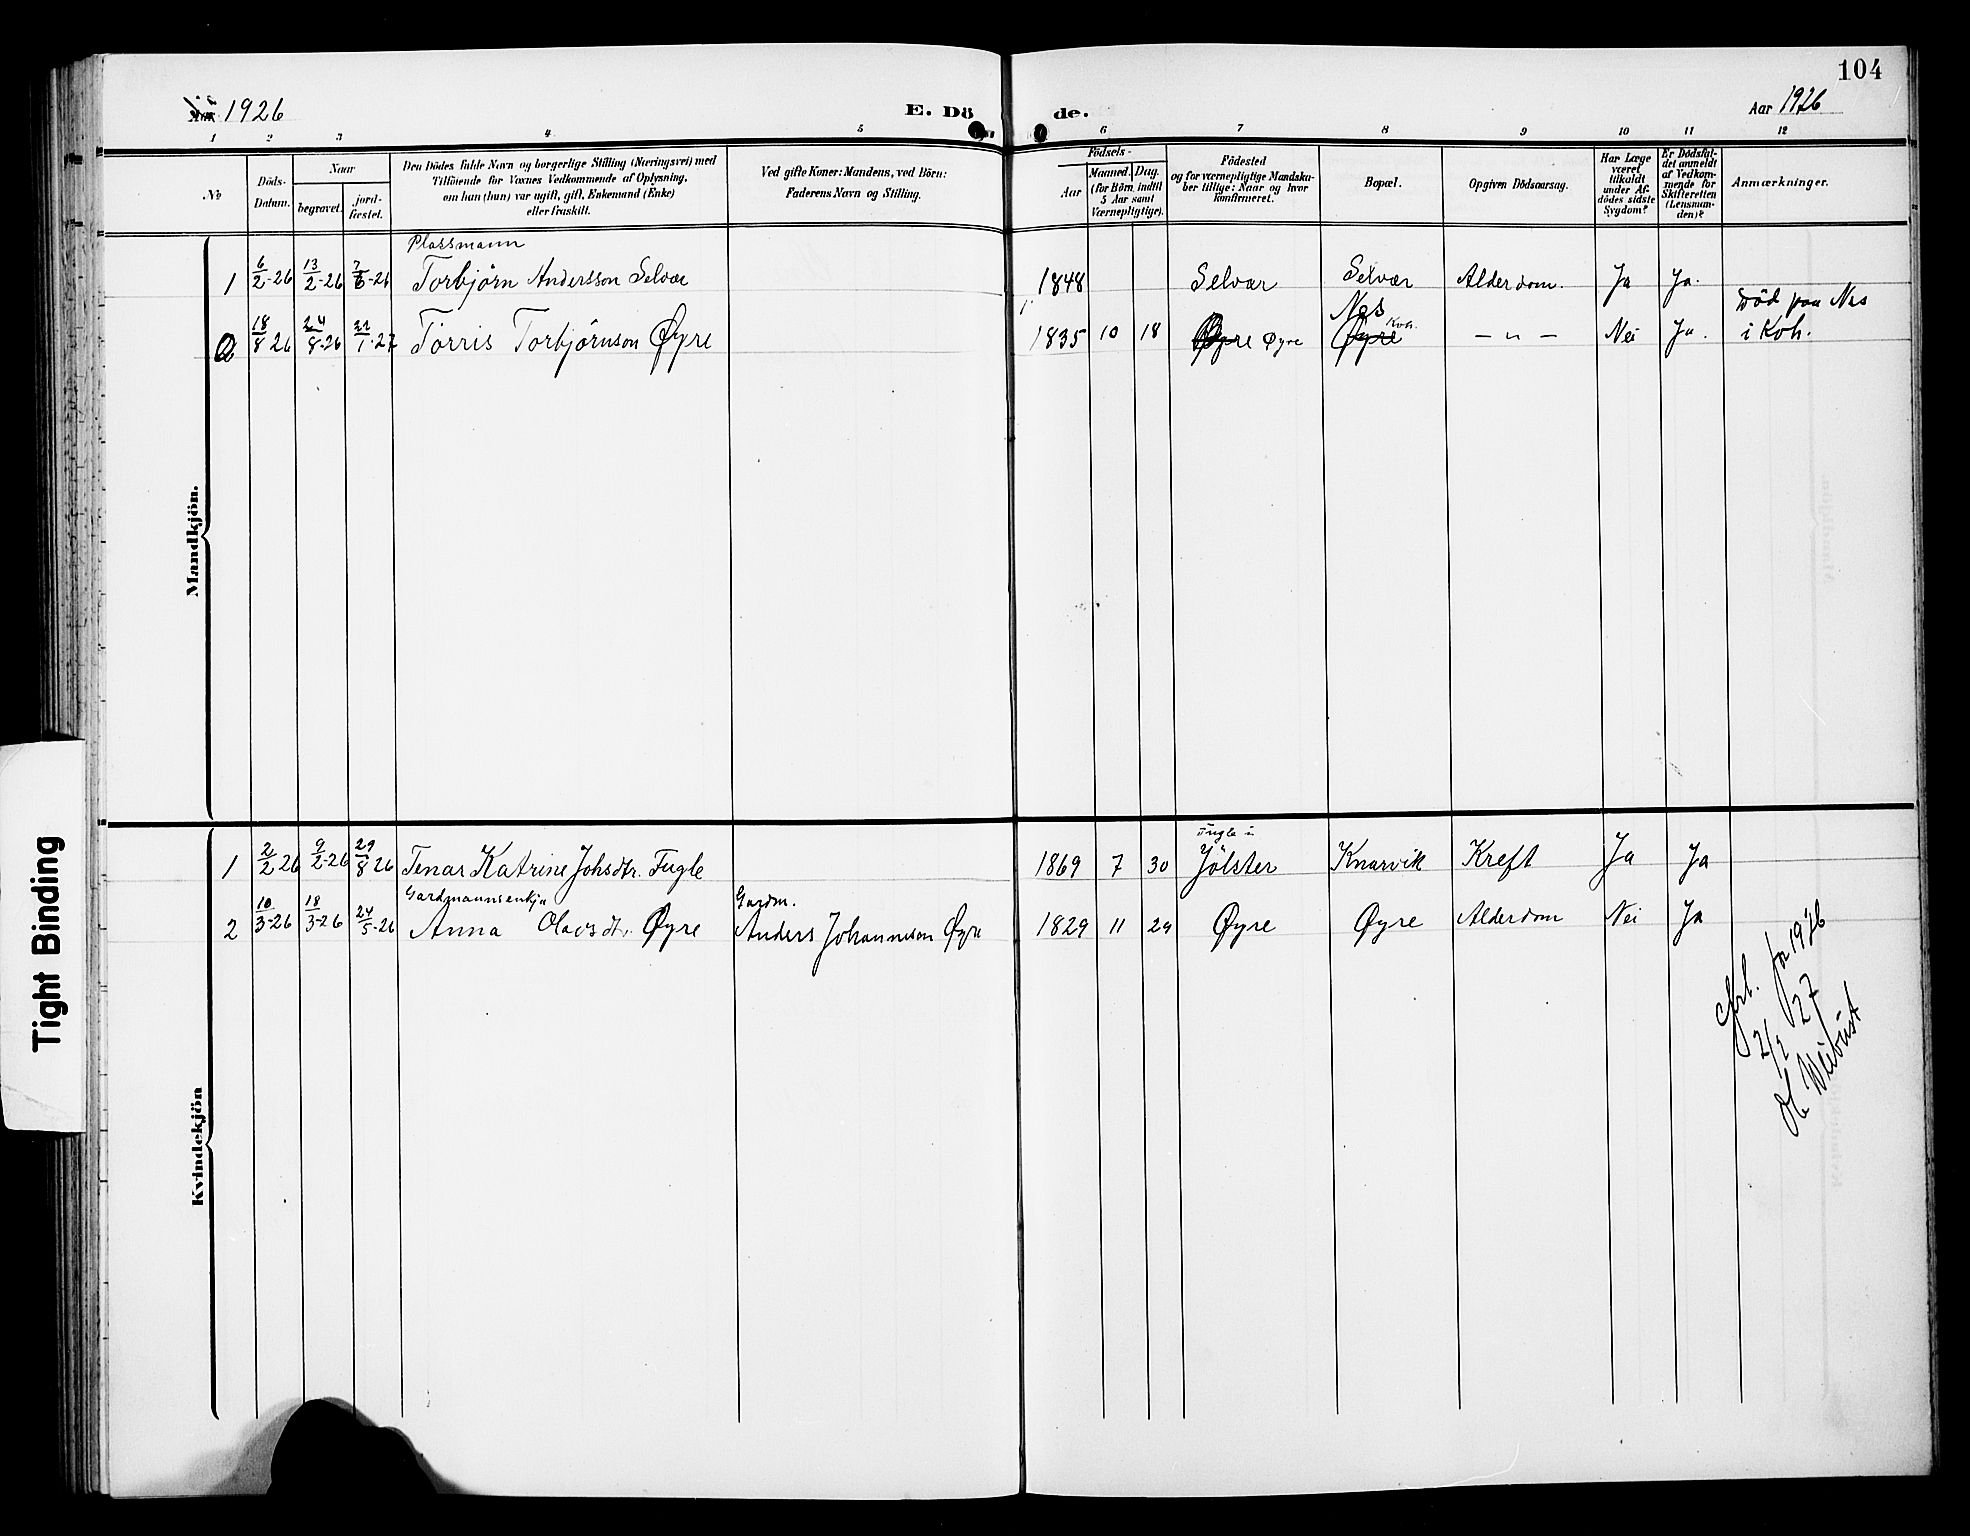 104
1926
E. Dö de.
Aar 1926
1 2 3 4 5 6 7 8 9 10 11 12
No
Döds-Datum.
Naar
begravet.
jord-fæstet.
Den Dödes fulde Navn og borgerlige Stilling (Næringsvei) med
Tilföiende for Voxnes Vedkommende af Oplysning,
om han (hun) var ugift, gift, Enkemand (Enke)
eller fraskilt.
Ved gifte Koner: Mandens, ved Börn:
Faderens Navn og Stilling.
Födsels-
Aar
Maaned. Dag.
(for Börn indtil
5 Aar samt
Værnepligtige).
Födested
og for værnepligtige Mandska-
ber tillige: Naar og hvor
konfirmeret.
Bopæl.
Opgiven Dödsaarsag.
Har Læge
været
tilkaldt
under Af-
dödes sidste
Sygdom?
Er Dödsfal-
det anmeldt
af Vedkom-
mende for
Skifteretten
(Lensman-
den)?
Anmærkninger.
Mandkjön.
Plassmann
1 6/2-26 13/2-26 7/3-26 Torbjørn Andersson Selvær 1848 Selvær Selvær Alderdom. Ja Ja.
Nes Koh.
Död paa Nes
2 18/8 26 24/8-26 21/1-27 Torris Torbjørnson Øyre 1835 10 18 Øyre Øyre Øyre — " — Nei Ja. i Koh.
Kvindekjön
Fugle i
1 2/2 26 9/2-26 29/8 26 Tenar Katrine Johsdtr. Fugle 1869 7 30 Jølster Knarvik Kreft Ja Ja
Gardmannsenkja Gardm.
2 10/3-26 18/3-26 24/5-26 Anna Olavsdtr. Øyre Anders Johannesson Øyre 1829 11 29 Øyre Øyre Alderdom Nei Ja
1926
2/2 27
Tight Binding